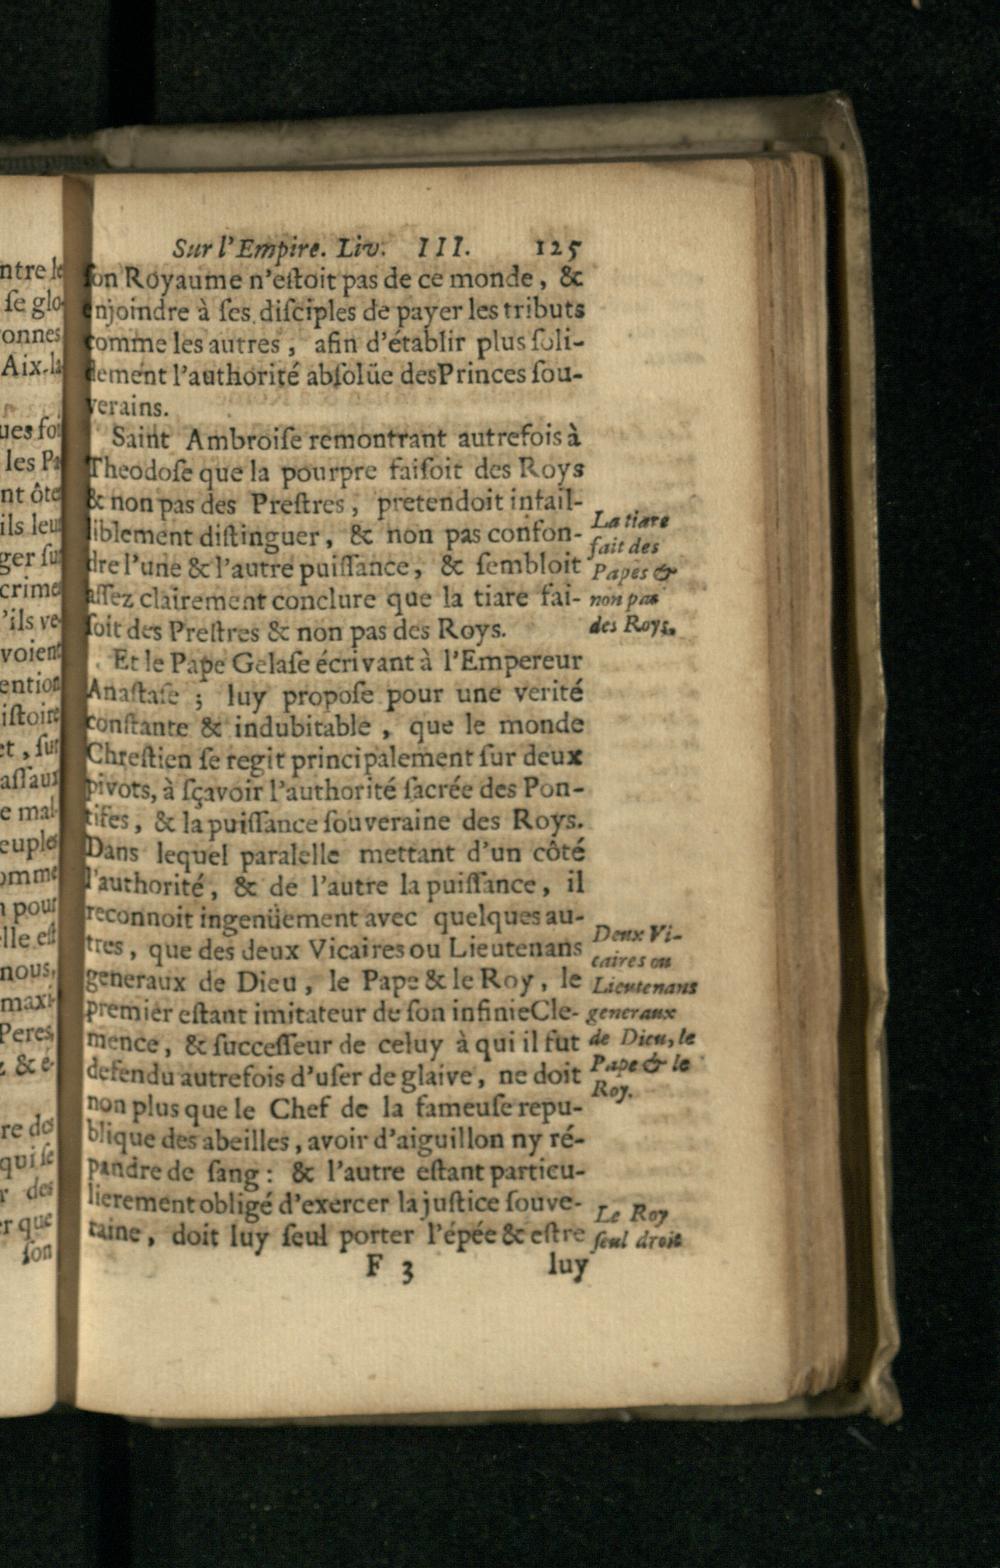 Sur l'Empire. Liv. III. 125
ſon Royaume n'eſtoit pas de ce monde, &
enjoindre à ſes diſciples de payer les tributs
comme les autres, afin d'établir plus ſoli-
dement l'authorité abſolüe desPrinces ſou-
verains.
Saint Ambroiſe remontrant autrefois à
Theodoſe que la pourpre faiſoit des Roys
& non pas des Preſtres, pretendoit infail-
liblement diſtinguer, & non pas confon-
dre l'une & l'autre puiſſance, & ſembloit
aſſez clairement conclure que la tiare fai-
ſoit des Preſtres & non pas des Roys.
Et le Pape Gelaſe écrivant à l'Empereur
Anaſtaſe; luy propoſe pour une verité
conſtante & indubitable, que le monde
Chreſtien ſe regit principalement ſur deux
pivots, à ſçavoir l'authorité ſacrée des Pon-
tifes, & la puiſſance ſouveraine des Roys.
Dans lequel paralelle mettant d'un côté
l'authorité, & de l'autre la puiſſance, il
reconnoit ingenüement avec quelques au-
tres, que des deux Vicaires ou Lieutenans
generaux de Dieu, le Pape & le Roy, le
premier eſtant imitateur de ſon infinieCle-
mence, & ſucceſſeur de celuy à qui il fut
defendu autrefois d'uſer de glaive, ne doit
non plus que le Chef de la fameuſe repu-
blique des abeilles, avoir d'aiguillon ny ré-
pandre de ſang: & l'autre eſtant particu-
lierement obligé d'exercer la juſtice ſouve-
raine, doit luy ſeul porter l'épée & eſtre
F 3 luy
La tiare
fait des
Papes &
non pas
des Roys.
Deux Vi-
caires ou
Lieutenans
generaux
de Dieu, le
Pape & le
Roy.
Le Roy
ſeul droit
ntre le
ſe glo-
onnes
Aix-la
ues ſoi
les Pa
nt ôte
ils leu
ger ſu
crime
'ils ve
voient
ention
iſtoire
et, ſur
aſſaux
e mal-
euples
omme
n pour
elle eſt
nous,
maxi-
Peres,
& é-
re des
qui ſe
r des
er que
ſon